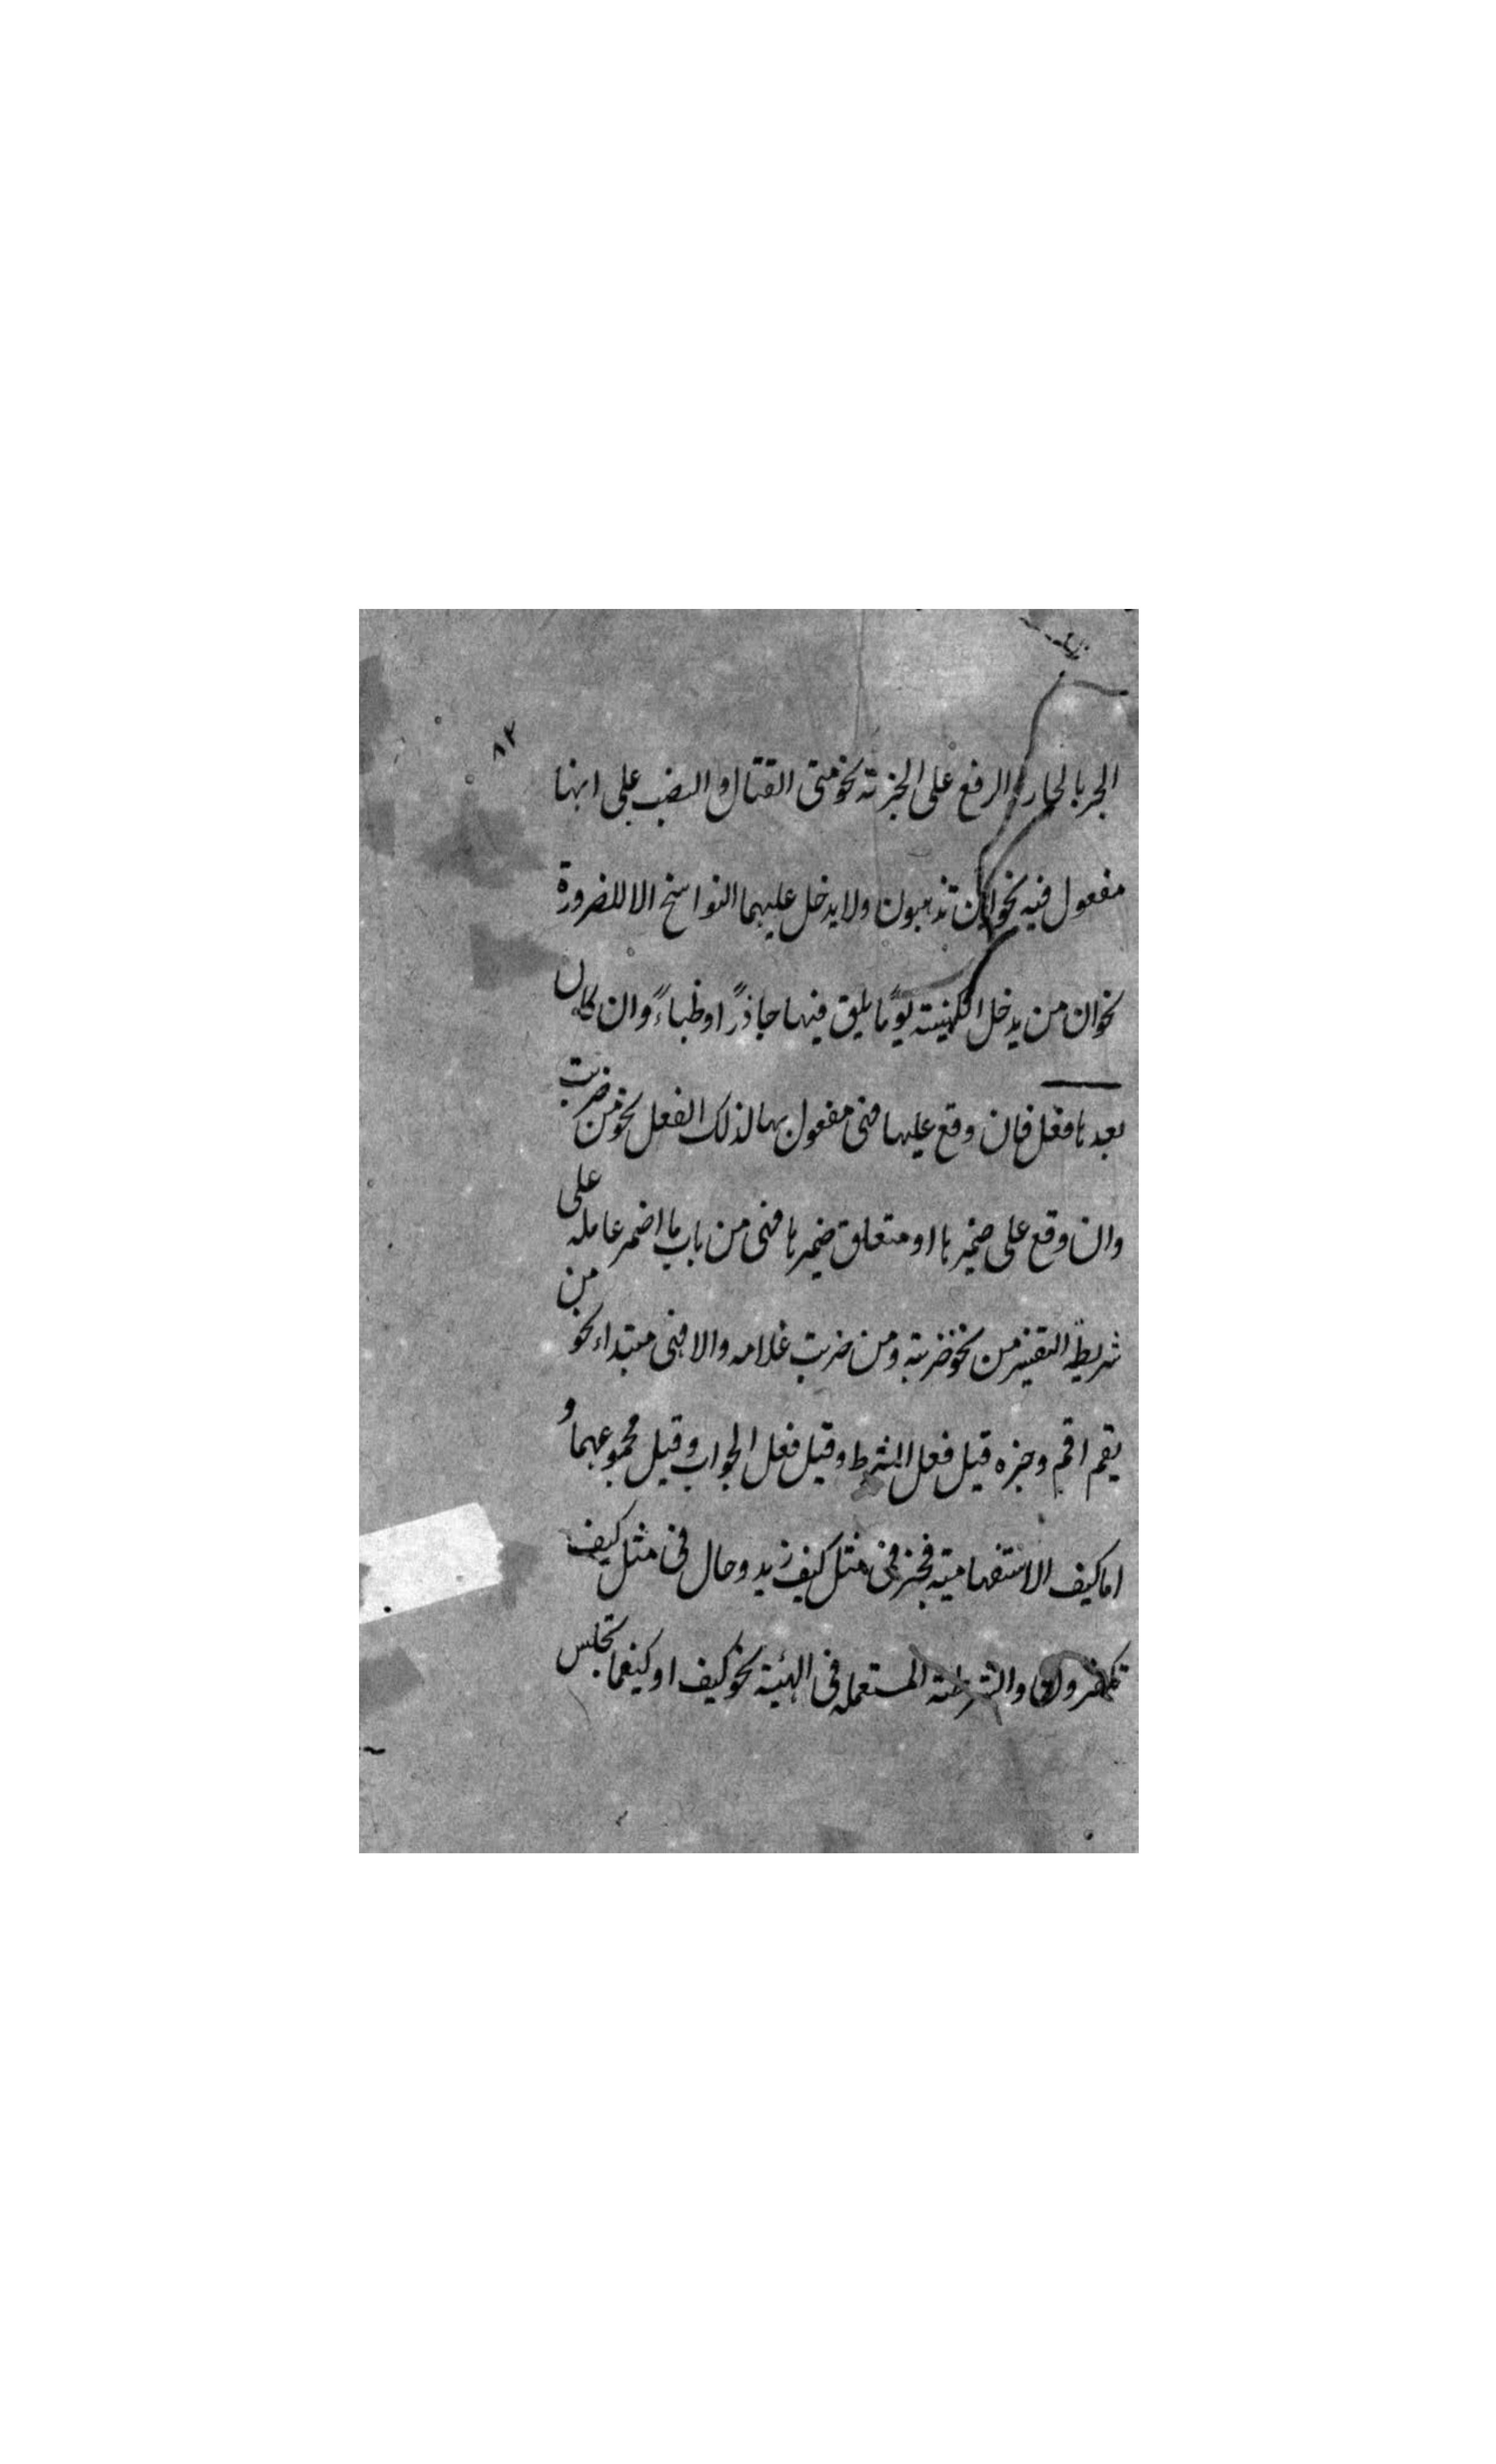 ٨٢
الجر بالجار والرفع على الخبرية نحو متى القتال والنصب على انها
مفعول فيه نحو اين تذهبون ولا يدخل عليهما النواسخ الا للضرورة
نحو ان من يدخل الكنيسة يومًا يلق فيها جاذرًا وظباءً وان كان
بعدها فعل فان وقع عليها فهى مفعول بها لذلك الفعل نحو من ضربت
وان وقع على ضميرها او متعلق ضميرها فهى من باب ما اضمر عامله على
شريطة التفسير نحو من ضربته ومن ضربت غلامه والا فهى مبتداء نحو من
يقم اقم وخبره قيل فعل الشرط وقيل فعل الجواب وقيل مجموعهما و
اما كيف الاستفهامية فخبر فى مثل كيف زيد وحال فى مثل كيف
تكفرون والشرطية المستعمله فى الهيئة نحو كيف او كيفما تجلس